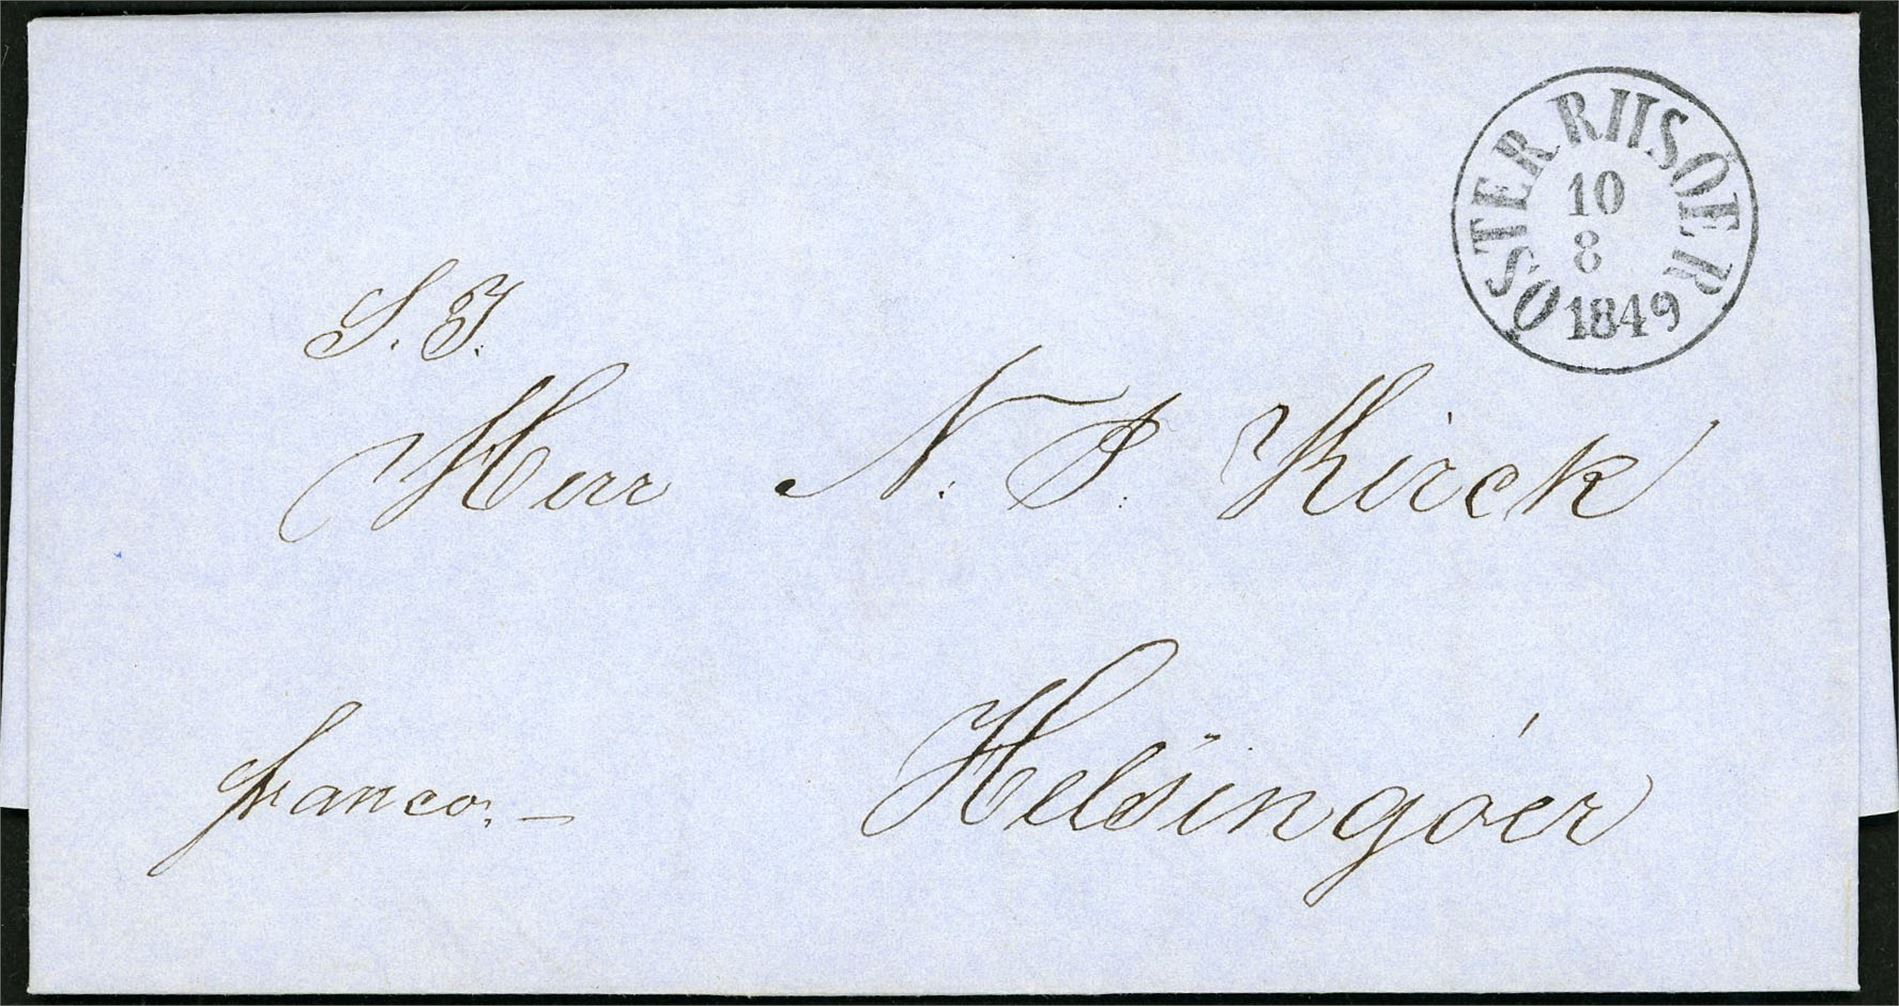 ÖSTER RIISÖER
10
8
1849
S. T.
Herr N. J. Kirck
Helsingóer
franco. —